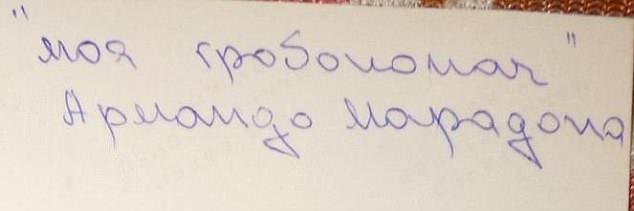 "моя гробокопач"
Армандо Марадона